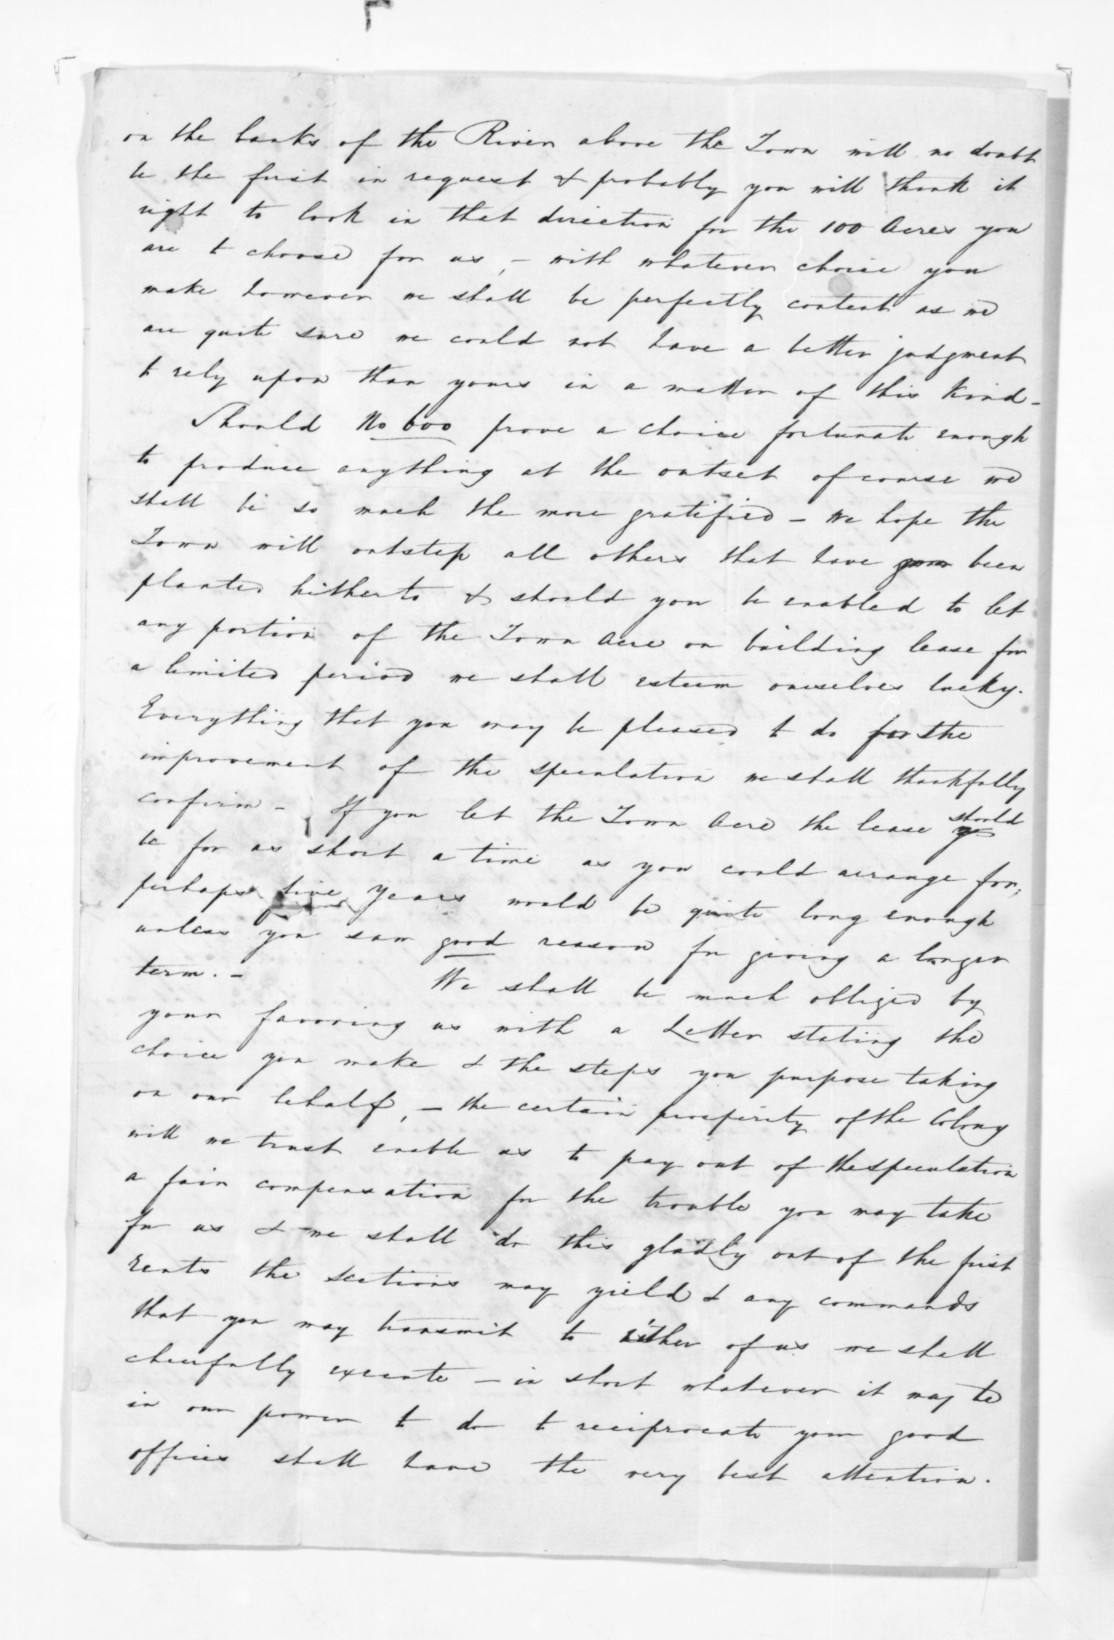 on the banks of the River above the Town will no doubt
be the first in request & probably you will think it
right to look in that direction for the 100 Acres you
are to choose for us, – with whatever choice you
make however we shall be perfectly content as we
are quite sure we could not have a better judgment
to rely upon than yours in a matter of this kind –
Should No 600 prove a choice fortunate enough
to produce anything at the outset of course we
shall be so much the more gratified – We hope the
Town will outstep all others that have been
planted hitherto & should you be enabled to let
any portion of the Town Acre on building lease for
a limited period we shall esteem ourselves lucky.
Everything that you may be pleased to do for the
improvement of the speculation we shall thankfully
confirm – If you let the Town Acre the lease should
be for as short a time as you could arrange for,
perhaps five years would be quite long enough
unless you saw good reason for giving a longer
term. – We shall be much obliged by
your favoring us with a Letter stating the
choice you make & the steps you purpose taking
on our behalf, – the certain prosperity of the Colony
will we trust enable us to pay out of the speculation
a fair compensation for the trouble you may take
for us & we shall do this gladly out of the first
rents the sections may yield & any commands
that you may transmit to either of us we shall
cheerfully execute – in short whatever it may be
in our power to do to reciprocate your good
offices shall have the very best attention.